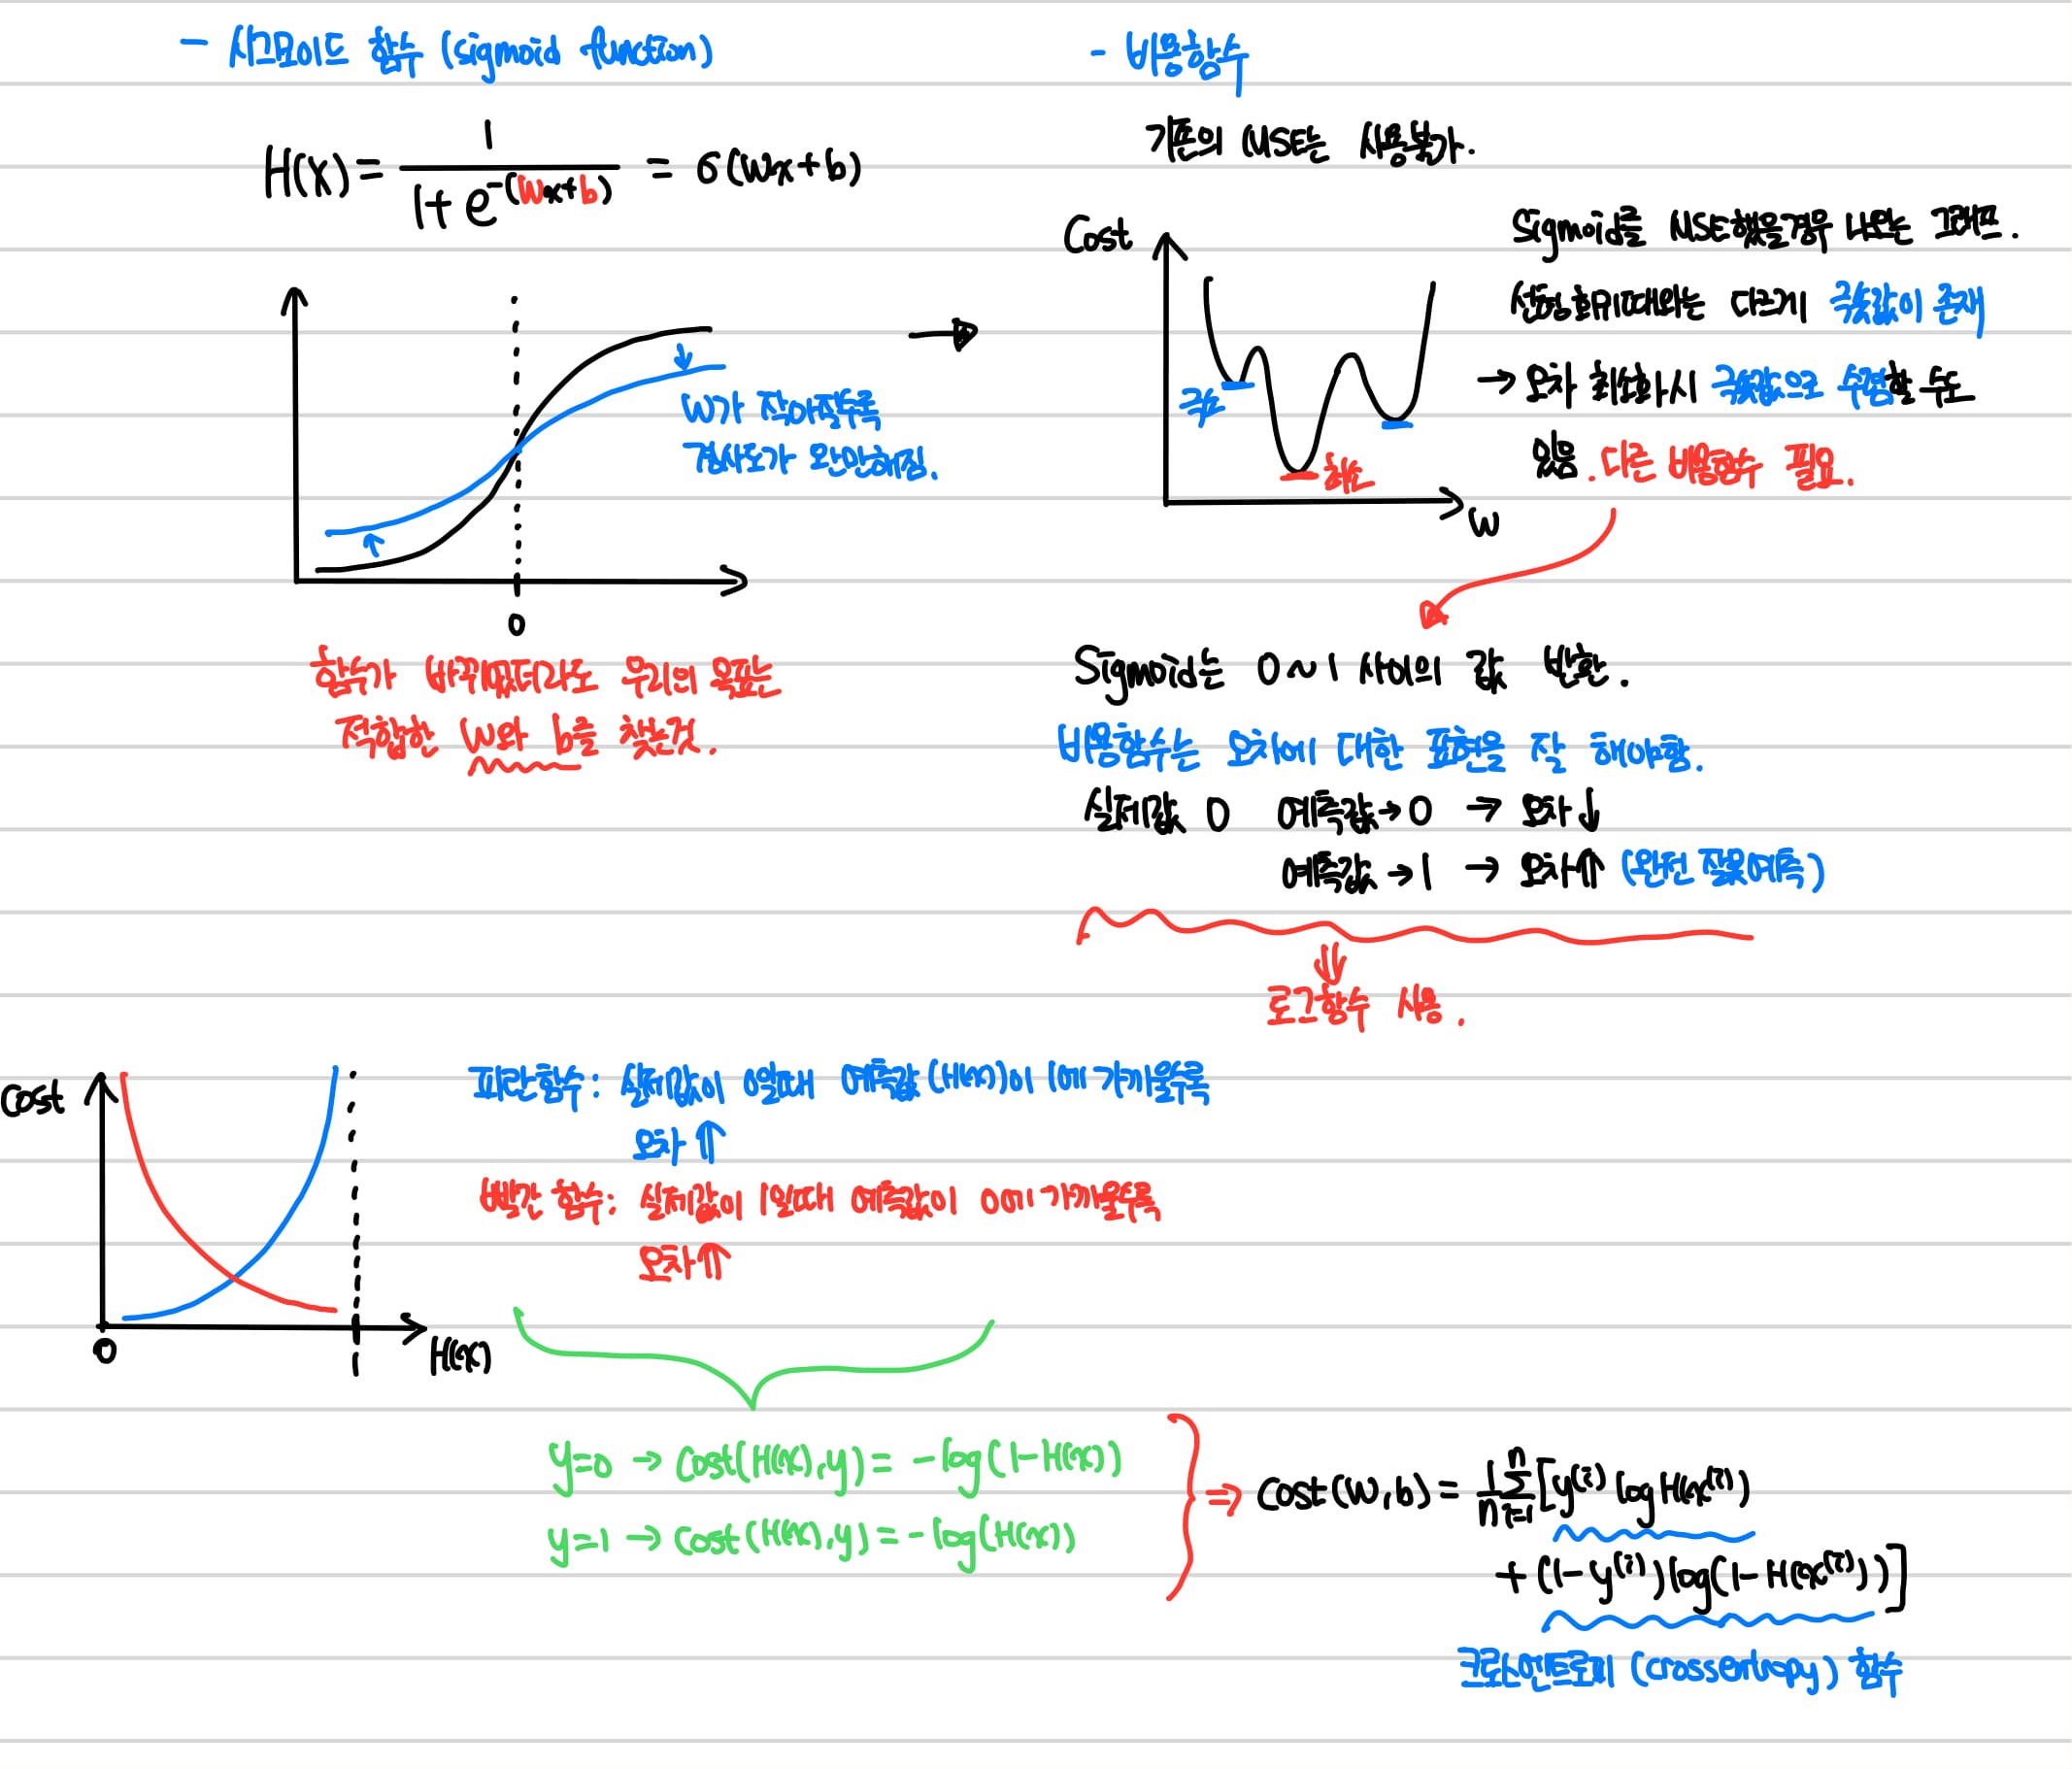 - 시그모이드 함수 (sigmoid function)
H(x) = 1 / (1 + e^-(Wx+b)) = σ(Wx+b)
W가 작아질수록
경사도가 완만해짐.
0
함수가 바뀌었더라도 우리의 목표는
적합한 W와 b를 찾는것.
- 비용함수
기존의 MSE는 사용불가.
Cost
Sigmoid를 MSE했을경우 나오는 그래프.
선형회귀때와는 다르게 극솟값이 존재
→ 오차 최소화시 극솟값으로 수렴할 수도
있음. 다른 비용함수 필요.
극소
최소
W
Sigmoid는 0~1 사이의 값 반환.
비용함수는 오차에 대한 표현을 잘 해야함.
실제값 0 예측값→0 → 오차↓
예측값→1 → 오차↑ (완전 잘못예측)
로그함수 사용.
Cost
0
1
H(x)
파란함수: 실제값이 0일때 예측값(H(x))이 1에 가까울수록
오차↑
빨간 함수: 실제값이 1일때 예측값이 0에 가까울수록
오차↑
y=0 → cost(H(x),y) = -log(1-H(x))
y=1 → cost(H(x),y) = -log(H(x))
⇒ cost(W,b) = 1/n Σ_{i=1}^{n} [y^(i) log H(x^(i))
+ (1-y^(i)) log(1-H(x^(i)))]
크로스엔트로피 (crossentropy) 함수